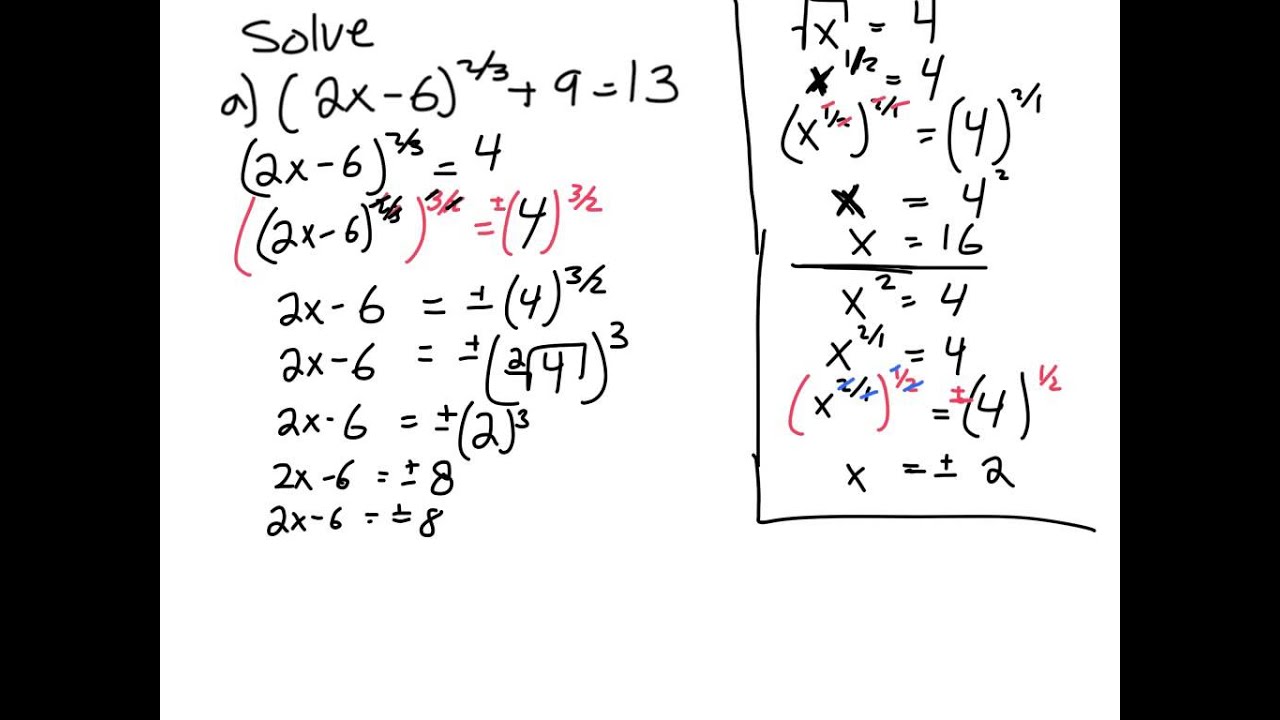 Solve
a) (2x-6)^2/3 + 9 = 13
(2x-6)^2/3 = 4
((2x-6)^2/3)^3/2 = ±(4)^3/2
2x-6 = ±(4)^3/2
2x-6 = ±(²√4)^3
2x-6 = ±(2)^3
2x-6 = ±8
2x-6 = ±8
√x = 4
x^1/2 = 4
(x^1/2)^2/1 = (4)^2/1
x = 4^2
x = 16
x^2 = 4
x^2/1 = 4
(x^2/1)^1/2 = ±(4)^1/2
x = ±2